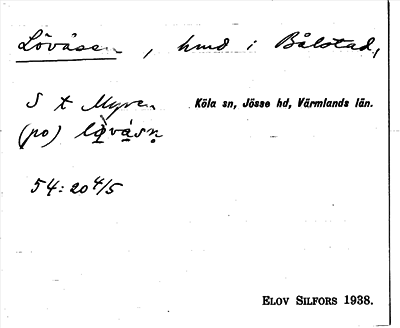 Lövåsen, hmd i Bålstad,
S t Myren Köla sn, Jösse hd, Värmlands län.
(po) lö̀vásn̥
54: 20 4/5
ELOV SILFORS 1938.